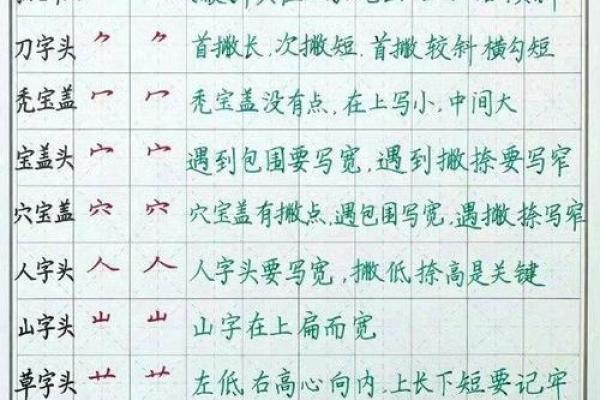 刀字头 ⺈ ⺈ 首撇长,次撇短.首撇较斜横勾短
秃宝盖 冖 冖 秃宝盖没有点,在上写小,中间大
宝盖头 宀 宀 遇到包围要写宽,遇到撇捺要写窄
穴宝盖 穴 穴 穴宝盖有撇点,遇包围写宽,遇撇捺写窄
人字头 人 人 人字头要写宽,撇低捺高是关键
山字头 山 山 山字在上扁而宽
草字头 艹 艹 左低右高心向内,上长下短要记牢